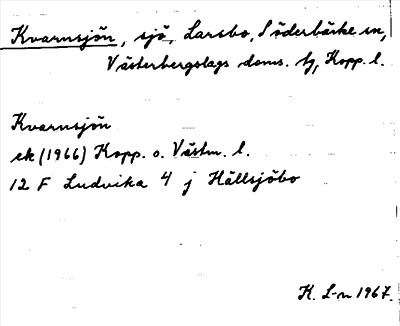 Kvarnsjön, sjö, Larsbo, Söderbärke sn,
Västerbergslags doms. tg, Kopp. l.
Kvarnsjön
ek (1966) Kopp. o. Västm. l.
12 F Ludvika 4 j Hällsjöbo
K. L-n 1967.